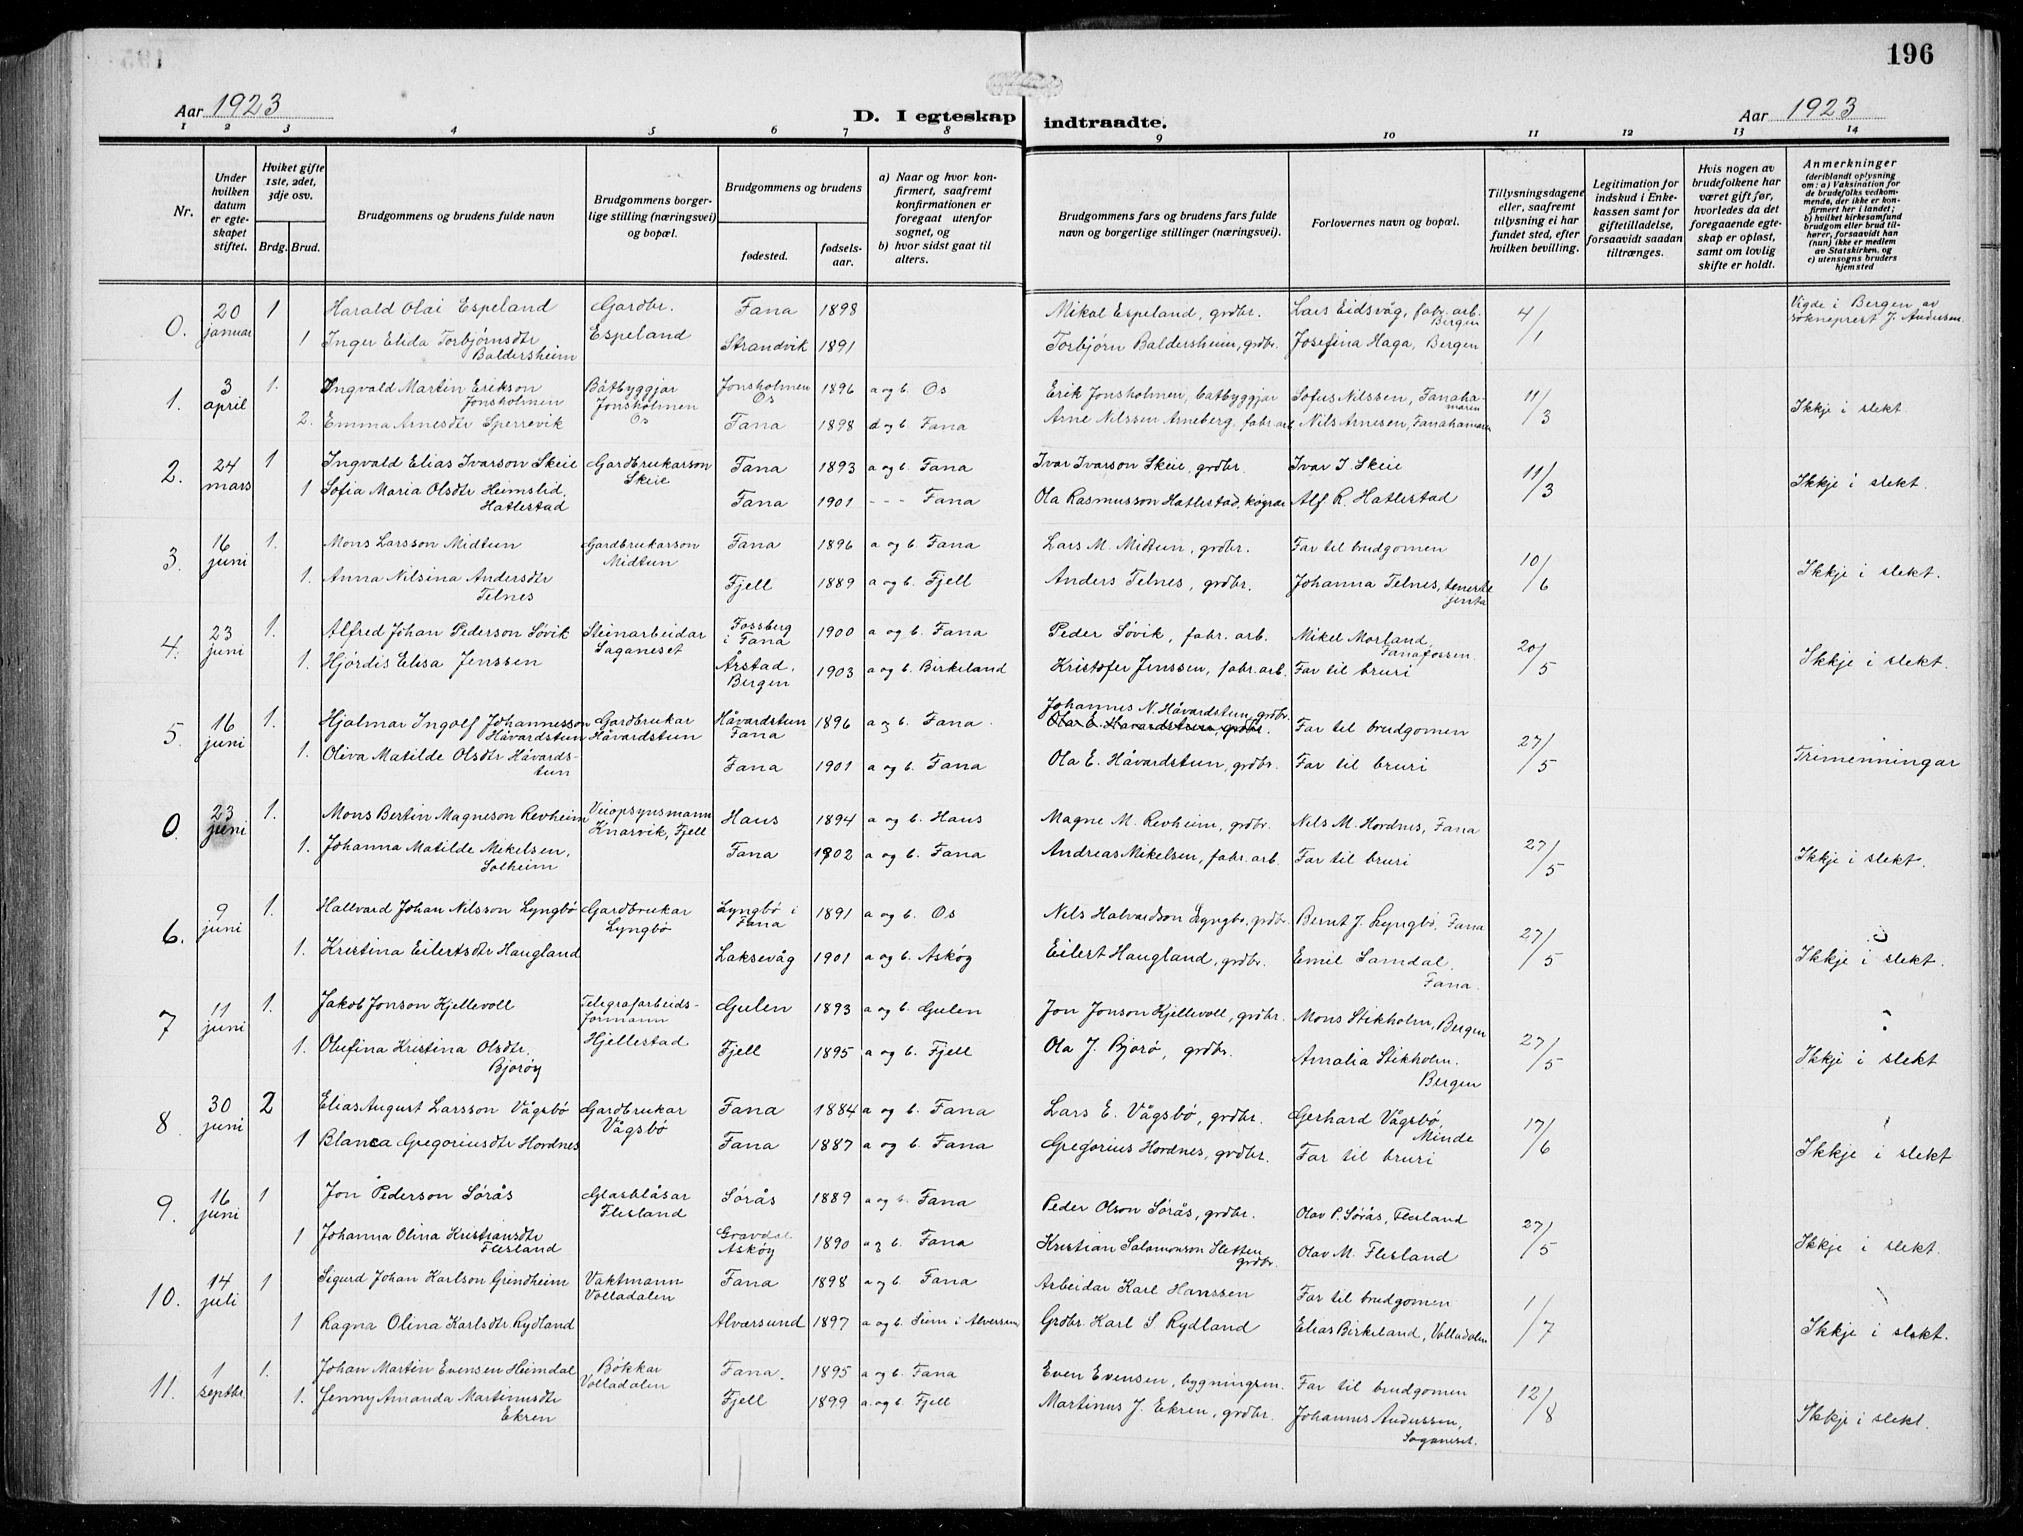 196
Aar 1923
D. I egteskap indtraadte.
Aar 1923
1 2 3 4 5 6 7 8 9 10 11 12 13 14
Nr.
Under hvilken datum er egteskapet stiftet.
Hviket gifte 1ste, 2det, 3dje osv.
Brdg. Brud.
Brudgommens og brudens fulde navn
Brudgommens borgerlige stilling (næringsvei) og bopæl.
Brudgommens og brudens
fødested. fødselsaar.
a) Naar og hvor konfirmert, saafremt konfirmationen er foregaat utenfor sognet, og
b) hvor sidst gaat til alters.
Brudgommens fars og brudens fars fulde navn og borgerlige stillinger (næringsvei).
Forlovernes navn og bopæl.
Tillysningsdagene eller, saafremt tillysning ei har fundet sted, efter hvilken bevilling.
Legitimation for indskud i Enkekassen samt for giftetilladelse, forsaavidt saadan tiltrænges.
Hvis nogen av brudefolkene har været gift før, hvorledes da det foregaaende egteskap er opløst, samt om lovlig skifte er holdt.
Anmerkninger (deriblandt oplysning om: a) Vaksination for de brudefolks vedkommende, der ikke er konfirmert her i landet; b) hvilket kirkesamfund brudgom eller brud tilhører, forsaavidt han (hun) ikke er medlem av Statskirken, og c) utensogns bruders hjemsted
0. 20 januar 1 Harald Olai Espeland Gardbr. Espeland Fana 1898 Mikal Espeland, grdbr. Lars Eidsvåg, fabr. arb. Bergen 4/1 Vigde i Bergen av sokneprest J. Andersen
1 Inger Elida Torbjørnsdtr Baldersheim Strandvik 1891 Torbjörn Baldersheim, grdbr. Josefina Haga, Bergen
1. 3 april 1. Ingvald Martin Erikson Jonsholmen Båtbyggjar Jonsholmen Os Jonsholmen Os 1896 a og b Os Erik Jonsholmen, batbyggjar Sofus Nilssen, Fanahamaren 11/3 Ikkje i slekt
2. Emma Arnesdtr Sperrevik Fana 1898 d og b Fana Arne Nilssen Arneberg, fabr. arb Nils Arnesen, Fanahamaren
2. 24 mars 1 Ingvald Elias Ivarson Skeie Gardbrukarson Skeie Fana 1893 a og b. Fana Ivar Ivarson Skeie, grdbr. Ivar I. Skeie 11/3 Ikkje i slekt.
1 Sofia Maria Olsdtr Heimslid, Hatlestad Fana 1901 --- Fana Ola Rasmusson Hatlestad, Alf R. Hatlestad
3. 16 juni 1. Mons Larsson Midtun Gardbrukarson Midtun Fana 1896 a og b. Fana Lars M. Midtun, grdbr. Far til brudgomen 10/6 Ikkje i slekt.
1. Anna Nilsina Andersdtr Telnes Fjell 1889 a og b. Fjell Anders Telnes, grdbr. Johanna Telnes, tenestejenta
4. 23 juni 1. Alfred Johan Pederson Søvik Steinarbeidar Saganeset Fossberg i Fana 1900 a og b. Fana Peder Søvik, fabr. arb. Mikel Morland Fanafossen. 20/5 Ikkje i slekt.
1. Hjördis Elisa Jenssen Årstad, Bergen 1903 a og b. Birkeland Kristofer Jenssen, fabr. arb. Far til bruri
5. 16 juni 1. Hjalmar Ingolf Johannesson Håvardstun Gardbrukar Håvardstun Håvardstun Fana 1896 a og b. Fana Johannes N. Håvardstun, grdbr. Ola E. Håvardstun, grdbr. Far til brudgomen 27/5 Trimenningar
1. Oliva Matilde Olsdtr Håvardstun Fana 1901 a og b. Fana Ola E. Håvardstun, grdbr. Far til bruri
0. 23 juni 1. Mons Bertin Magneson Revheim Veiopsynsmann Knarvik, Fjell Haus 1894 a og b. Haus Magne M. Revheim, grdbr. Nils M. Hordnes, Fana 27/5 Ikkje i slekt.
1. Johanna Matilde Mikelsen, Solheim Fana 1902 a og b. Fana Andreas Mikelsen, fabr. arb. Far til bruri
6. 9 juni 1. Hallvard Johan Nilsson Lyngbö Gardbrukar Lyngbö Lyngbö i Fana 1891 a og b. Os Nils Halvardson Lyngbö, grdbr. Bernt J. Lyngbö, Fana 27/5 Ikkje i slekt.
1. Kristina Eilertsdtr Haugland Laksevåg 1901 a og b. Askøy Eilert Haugland, grdbr. Emil Samdal, Fana.
7 11 juni 1. Jakob Jonson Kjellevoll Telegrafarbeids-formann Hjellestad Gulen 1893 a og b. Gulen Jon Jonson Kjellevoll, grdbr. Mons Stikholm, Bergen 27/5 Ikkje i slekt
1. Olufina Kristina Olsdtr. Bjorøy Fjell 1895 a og b. Fjell Ola J. Bjorø, grdbr. Amalia Stikholm. Bergen
8. 30 juni 2 Elias August Larsson Vågsbö Gardbrukar Vågsbö Fana 1884 a og b. Fana Lars E. Vågsbö, grdbr. Gerhard Vågsbö, Minde 17/6 Ikkje i slekt
1 Blanca Gregoriusdtr Hordnes Fana 1887 a og b. Fana Gregorius Hordnes, grdbr. Far til bruri
9. 16 juni 1 Jon Pederson Sørås Glasblåsar Flesland Sørås 1889 a og b. Fana Peder Olson Sørås, grdbr. Olav P. Sørås, Flesland 27/5 Ikkje i slekt.
1 Johanna Olina Kristiansdtr Flesland Gravdal Askøy 1890 a og b. Fana Kristian Salamonson Sletten grdbr. Olav M. Flesland
10. 14 juli 1 Sigurd Johan Karlson Grindheim Vaktmann Volladalen Fana 1898 a og b. Fana Arbeidar Karl Hanssen Far til brudgomen 1/7 Ikkje i slekt.
1 Ragna Olina Karlsdtr Rydland Alversund 1897 a og b. Seim i Alversund Grdbr. Karl S. Rydland Elias Birkeland, Volladalen
11. 1 septbr. 1. Johan Martin Evensen Heimdal Bøkkar Volladalen Fana. 1895 a og b. Fana Even Evensen, bygningssn. Far til brudgomen 12/8 Ikkje i slekt
1. Jenny Amanda Martinusdtr Ekren Fjell 1899 a og b. Fjell Martinus J. Ekren, grdbr. Johannes Andersen, Soganeset.